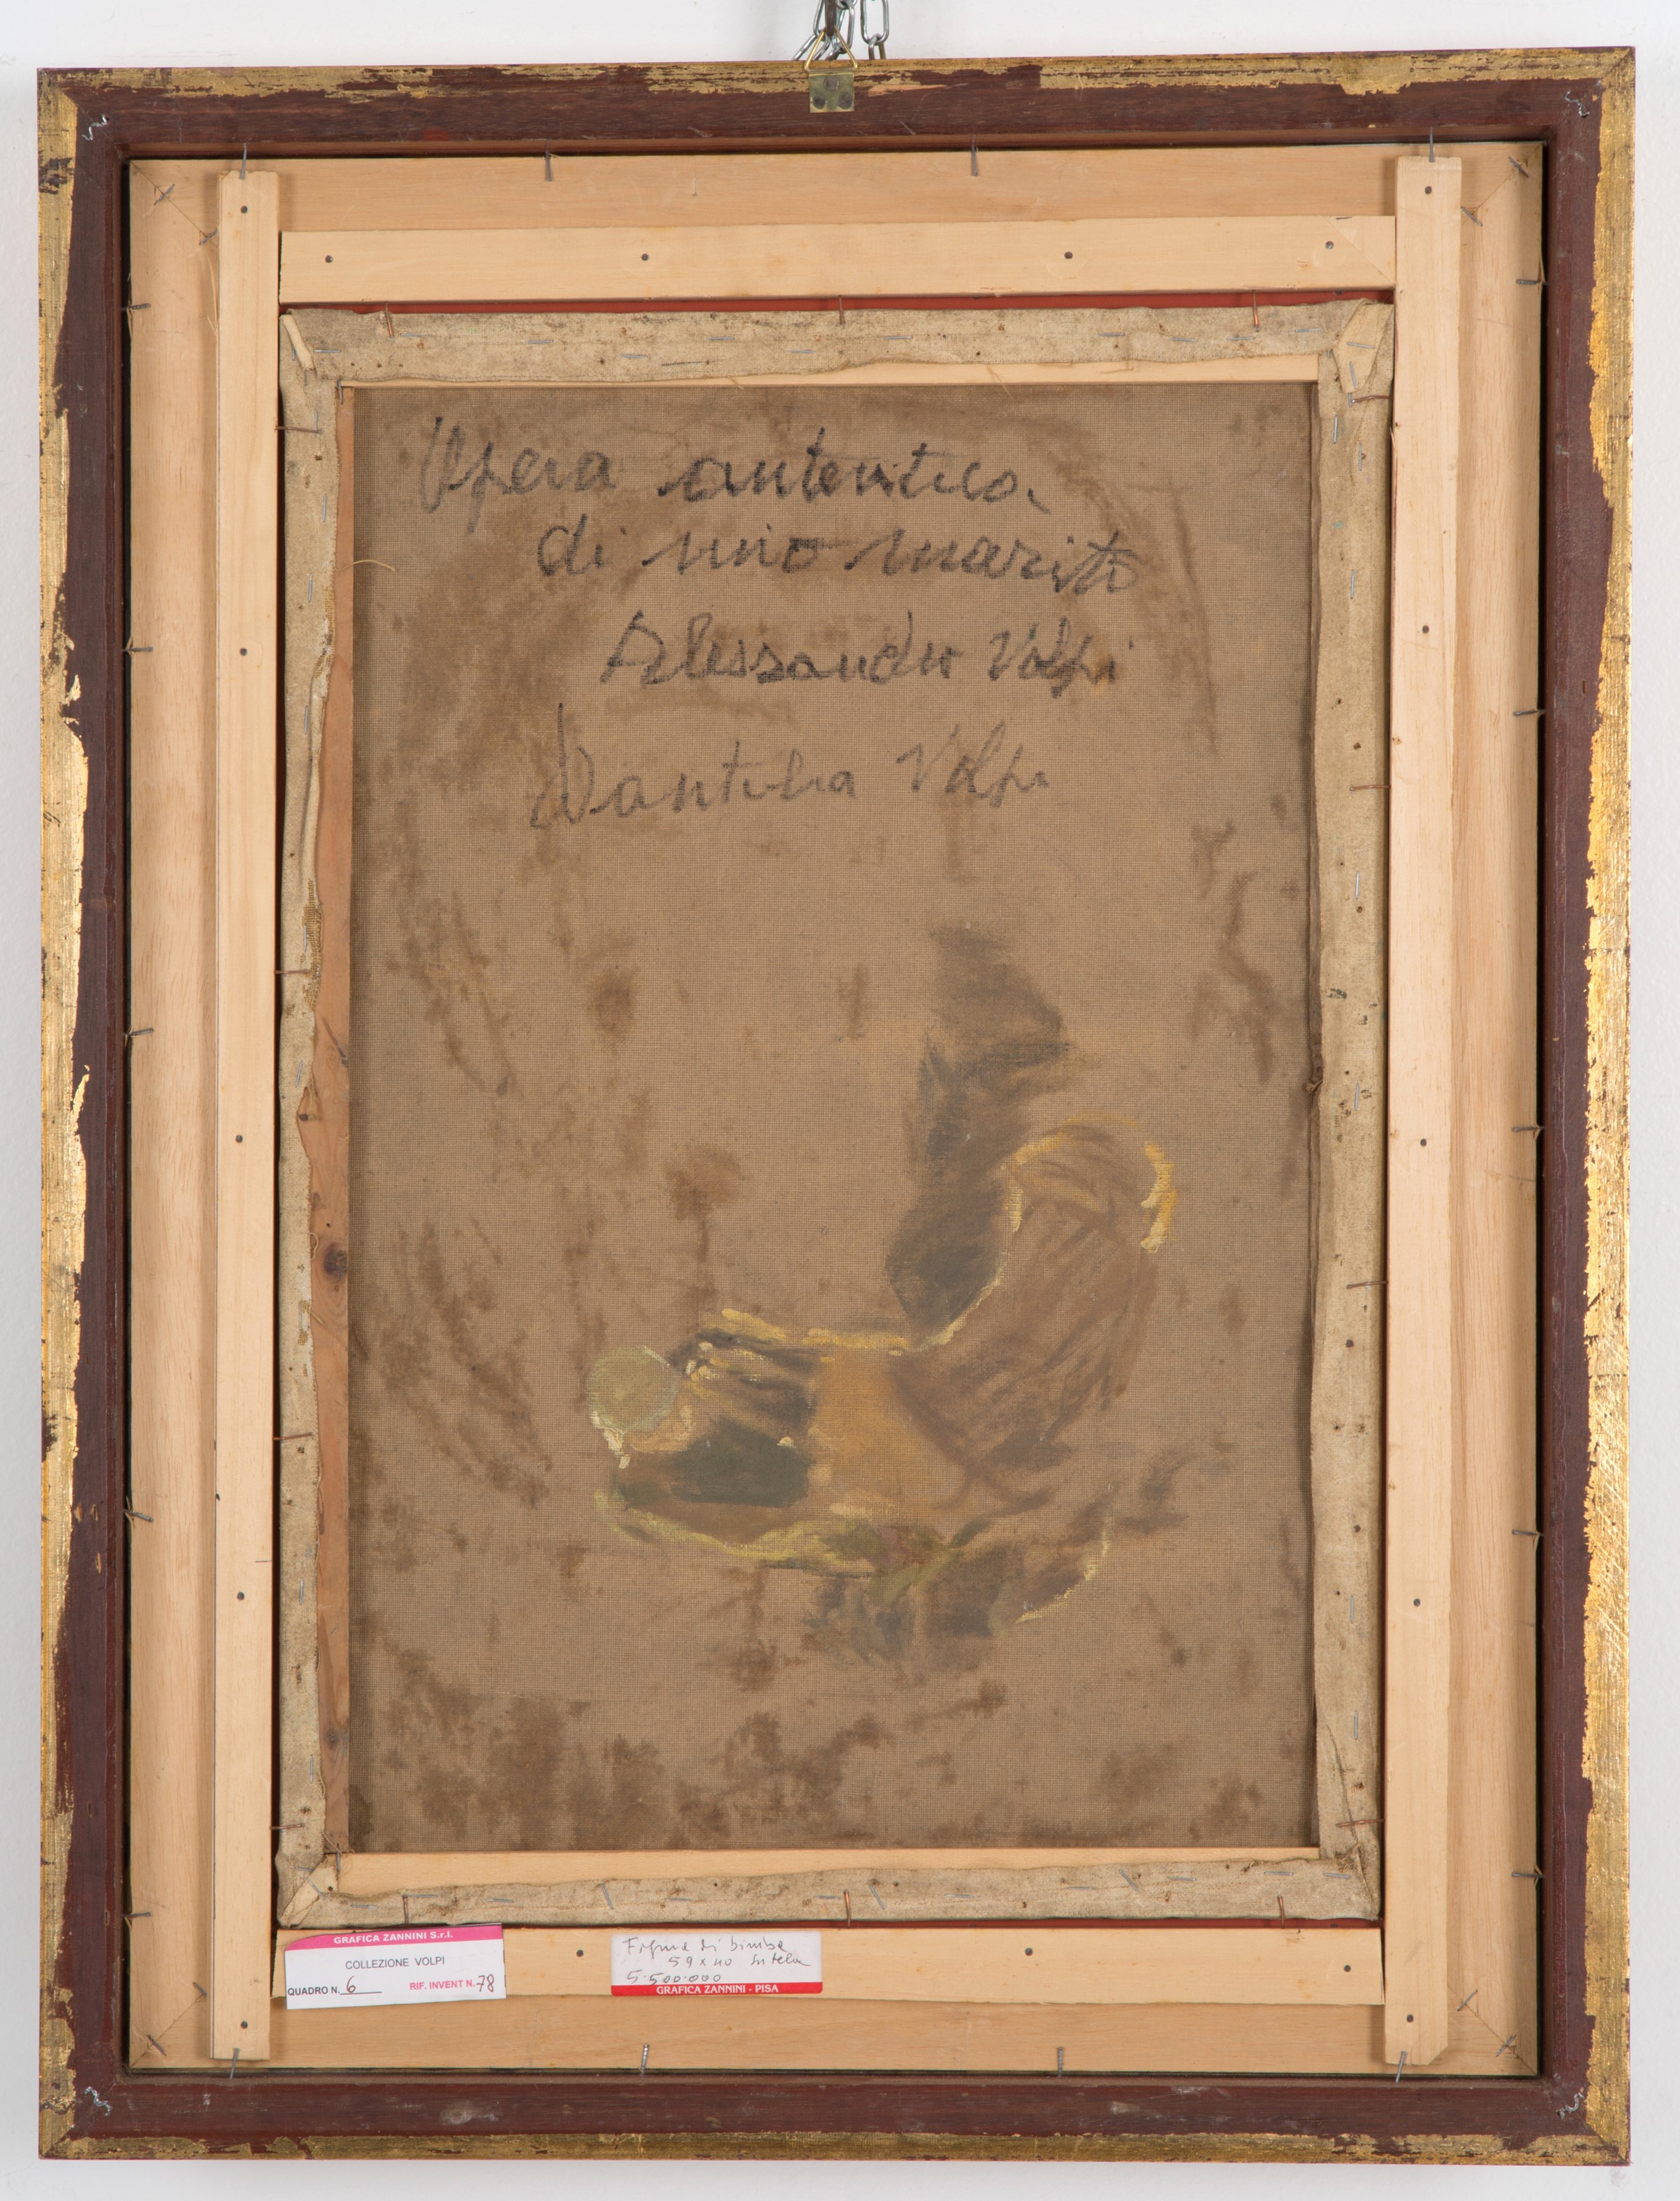 Opera autentica
di mio marito
Alessandro Volpi
Dantilia Volpi
GRAFICA ZANNINI S.r.l.
COLLEZIONE VOLPI
QUADRO N. 6 RIF. INVENT N. 78
Figura di bimba
59 x 40 su tela
5.500.000
GRAFICA ZANNINI - PISA